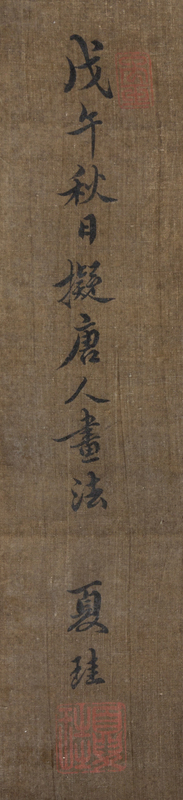 戊午秋日擬唐人畫法
夏珪